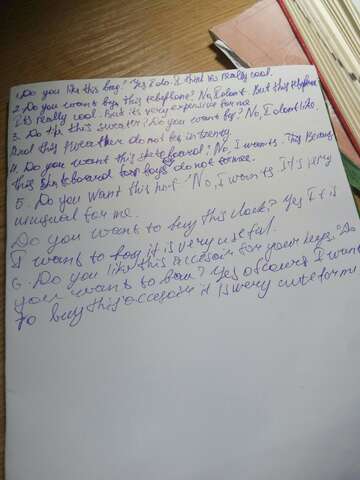 1. Do you like this bag? Yes I do. I think it's really cool.
2. Do you want buy this telephone? No, I don't. But this telephone
it's really cool. But it's very expensive for me.
3. Do this sweater? Do you want buy? No, I don't like.
And this sweather do not be in trendy.
4. Do you want this skateboard? No, I wants. This Because
this skateboard for boys do not to me.
5. Do you want this hat? No, I wants It's very
unusual for me.
Do you want to buy this clock? Yes I it is
I want to buy it is very useful.
6. Do you like this Accesoir for your keys? Do
you wants to bay? Yes of cours I want
to buy this accesoir it is very cute for me